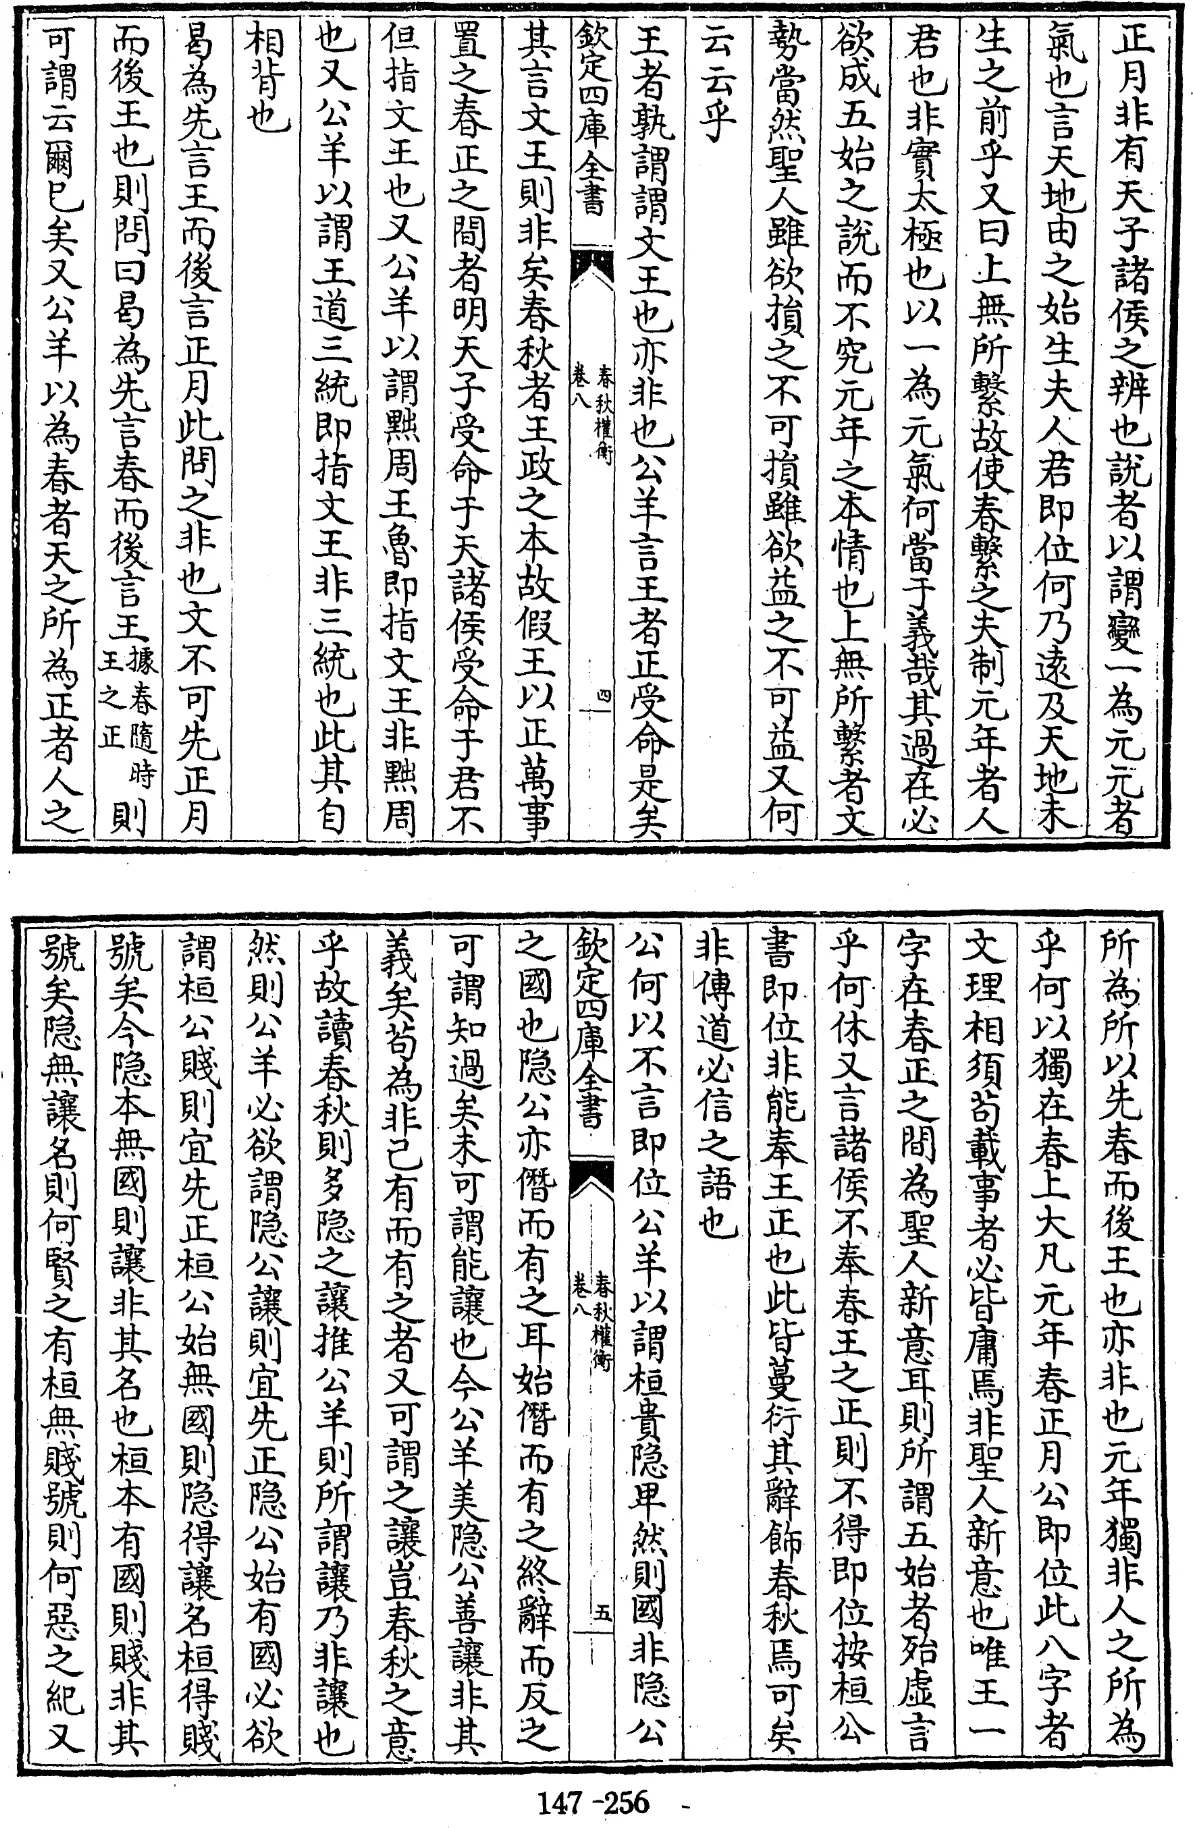 正月非有天子諸侯之辨也說者以謂變一為元元者
氣也言天地由之始生夫人君即位何乃逺及天地未
生之前乎又曰上無所繫故使春繫之夫制元年者人
君也非實太極也以一為元氣何當于義哉其過在必
欲成五始之說而不究元年之本情也上無所繫者文
勢當然聖人雖欲損之不可損雖欲益之不可益又何
云云乎
王者孰謂謂文王也亦非也公羊言王者正受命是矣
欽定四庫全書
春秋權衡
卷八
四
其言文王則非矣春秋者王政之本故假王以正萬事
置之春正之間者明天子受命于天諸侯受命于君不
但指文王也又公羊以謂黜周王魯即指文王非黜周
也又公羊以謂王道三統即指文王非三統也此其自
相背也
曷為先言王而後言正月此問之非也文不可先正月
而後王也則問曰曷為先言春而後言王據春隨時王之正則
可謂云爾已矣又公羊以為春者天之所為正者人之
所為所以先春而後王也亦非也元年獨非人之所為
乎何以獨在春上大凡元年春正月公即位此八字者
文理相須茍載事者必皆庸焉非聖人新意也唯王一
字在春正之間為聖人新意耳則所謂五始者殆虛言
乎何休又言諸侯不奉春王之正則不得即位按桓公
書即位非能奉王正也此皆蔓衍其辭飾春秋焉可矣
非傳道必信之語也
公何以不言即位公羊以謂桓貴隐卑然則國非隐公
欽定四庫全書
春秋權衡
卷八
五
之國也隐公亦僭而有之耳始僭而有之終辭而反之
可謂知過矣未可謂能讓也今公羊美隐公善讓非其
義矣茍為非己有而有之者又可謂之讓豈春秋之意
乎故讀春秋則多隐之讓推公羊則所謂讓乃非讓也
然則公羊必欲謂隐公讓則宜先正隐公始有國必欲
謂桓公賤則宜先正桓公始無國則隐得讓名桓得賤
號矣今隐本無國則讓非其名也桓本有國則賤非其
號矣隐無讓名則何賢之有桓無賤號則何惡之紀又
147-256